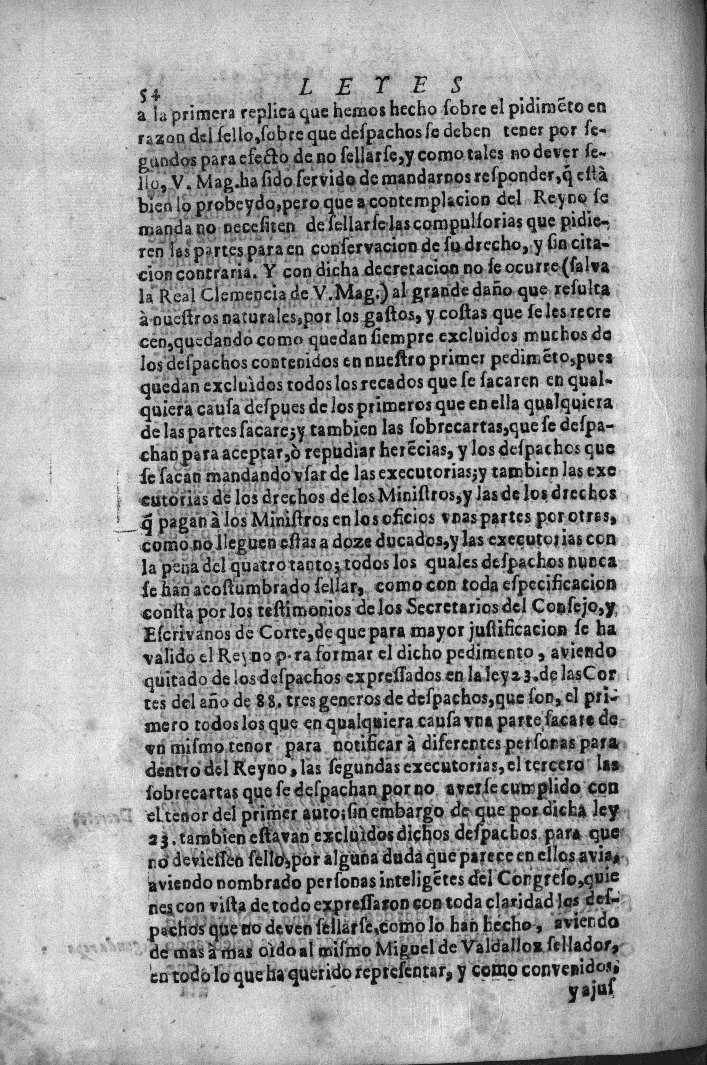 54 LEYES
a la primera replica que hemos hecho ſobre el pidimẽto en
razon del ſello, ſobre que deſpachos ſe deben tener por ſe-
gundos para efecto de no ſellarſe, y como tales no dever ſe-
llo, V. Mag. ha ſido ſervido de mandarnos reſponder, q̃ eſtà
bien lo probeydo, pero que a contemplacion del Reyno ſe
manda no neceſiten de ſellarſe las compulſorias que pidie-
ren las partes para en conſervacion de ſu drecho, y ſin cita-
cion contraria. Y con dicha decretacion no ſe ocurre (ſalva
la Real Clemencia de V. Mag.) al grande daño que reſulta
à nueſtros naturales, por los gaſtos, y coſtas que ſe les recre
cen, quedando como quedan ſiempre excluìdos muchos de
los deſpachos contenidos en nueſtro primer pedimẽto, pues
quedan excluìdos todos los recados que ſe ſacaren en qual-
quiera cauſa deſpues de los primeros que en ella qualquiera
de las partes ſacare; y tambien las ſobrecartas, que ſe deſpa-
chan para aceptar, ò repudiar herẽcias, y los deſpachos que
ſe ſacan mandando vſar de las executorias; y tambien las exe
cutorias de los drechos de los Miniſtros, y las de los drechos
q̃ pagan à los Miniſtros en los oficios vnas partes por otras,
como no lleguen eſtas a doze ducados, y las executorias con
la pena del quatro tanto; todos los quales deſpachos nunca
ſe han acoſtumbrado ſellar, como con toda eſpecificacion
conſta por los teſtimonios de los Secretarios del Conſejo, y
Eſcrivanos de Corte, de que para mayor juſtificacion ſe ha
valido el Reyno p.ra formar el dicho pedimento, aviendo
quitado de los deſpachos expreſſados en la ley 23. de las Cor
tes del año de 88. tres generos de deſpachos, que ſon, el pri-
mero todos los que en qualquiera cauſa vna parte ſacare de
vn miſmo tenor para notificar à diferentes perſonas para
dentro del Reyno, las ſegundas executorias, el tercero las
ſobrecartas que ſe deſpachan por no averſe cumplido con
el tenor del primer auto; ſin embargo de que por dicha ley
23. tambien eſtavan excluìdos dichos deſpachos para que
no devieſſen ſello, por alguna duda que parece en ellos avia,
aviendo nombrado perſonas inteligẽtes del Congreſo, quie
nes con viſta de todo expreſſaron con toda claridad los deſ-
pachos que no deven ſellarſe, como lo han hecho, aviendo
de mas à mas oìdo al miſmo Miguel de Valdalloz ſellador,
en todo lo que ha querido repreſentar, y como convenidos,
y ajuſ